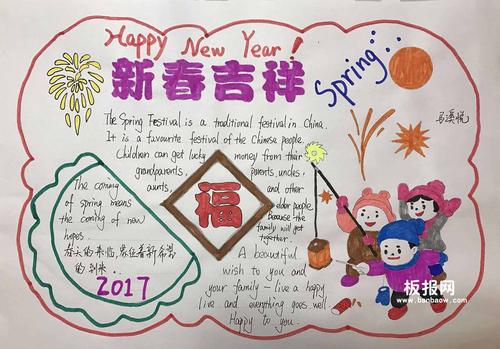 Happy New Year!
新春吉祥
Spring
The Spring Festival is a traditional festival in China.
It is a favourite festival of the Chinese people.
Children can get lucky money from their
grandparents, parents, uncles,
aunts, and other
elder people
Because the
family will get
together.
福
The coming
of spring means
the coming of new
hopes.
春天的来临意味着新希望
的到来.
2017
A beautiful
wish to you and
your family - live a happy
live and everything goes well
Happy to you.
板报网
www.banbaow.com